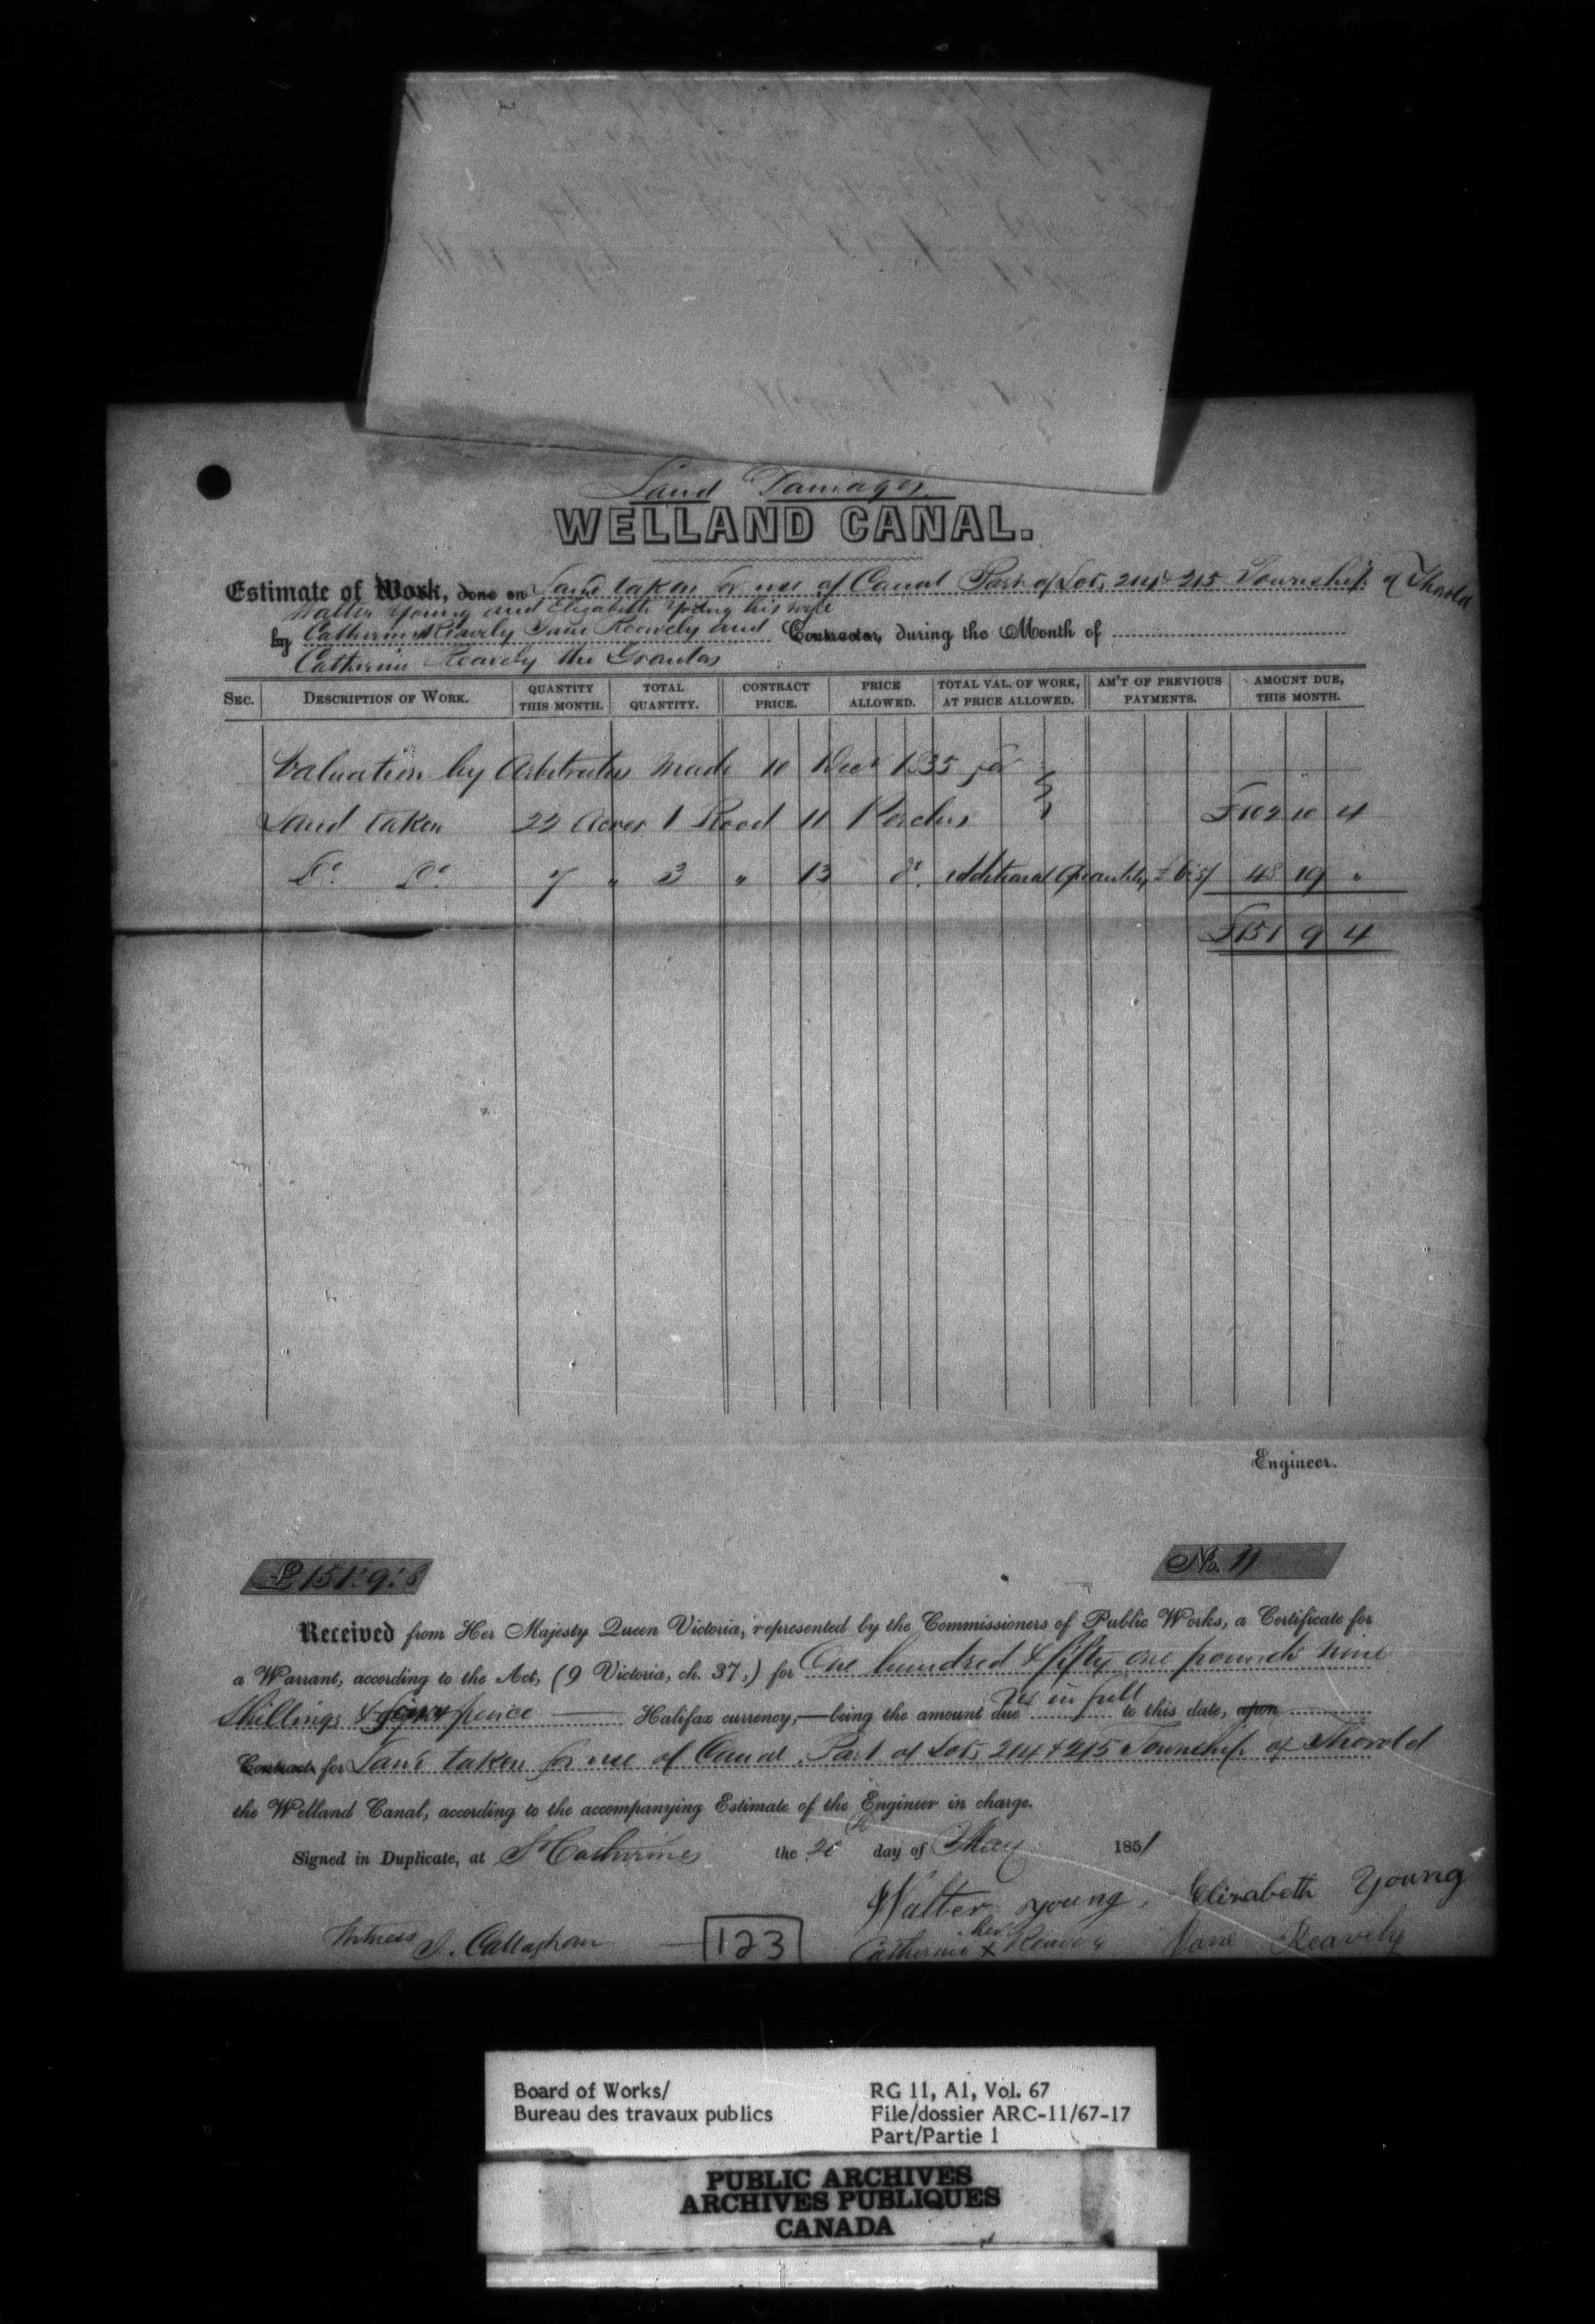 Land Damages
WELLAND CANAL.
Estimate of Work, done on Land taken for use of Canal Part of Lots 214 & 215 Township of Thorold
Walter Young and Elizabeth Young his wife
by Catherine Reavely Jane Reavely and Contractor, during the Month of
Catherine Reavely the Grantos
SEC. DESCRIPTION OF WORK. QUANTITY THIS MONTH. TOTAL QUANTITY. CONTRACT PRICE. PRICE ALLOWED. TOTAL VAL. OF WORK, AT PRICE ALLOWED. AM'T OF PREVIOUS PAYMENTS. AMOUNT DUE, THIS MONTH.
Valuation by Arbitrators made 10 Decr 1835 for
Land taken 22 Acres 1 Rood 11 Perches £102 10 4
Do. Do. 7 " 3 " 13 do. additional Quantity 48 19 "
£151 9 4
Engineer.
£151:9:
No. 11
Received from Her Majesty Queen Victoria, represented by the Commissioners of Public Works, a Certificate for
a Warrant, according to the Act, (9 Victoria, ch. 37,) for One hundred & fifty one pounds nine
Shillings & pence Halifax currency,—being the amount due in full to this date, upon
Contract for Land taken for use of Canal Part of Lots 214 & 215 Township of Thorold
the Welland Canal, according to the accompanying Estimate of the Engineer in charge.
Signed in Duplicate, at St Catherines the 20th day of May 1851
Walter Young, Elizabeth Young
Catherine her X Reavely Jane Reavely
Witness J. Callaghan
123
Board of Works/
Bureau des travaux publics
RG 11, A1, Vol. 67
File/dossier ARC-11/67-17
Part/Partie 1
PUBLIC ARCHIVES
ARCHIVES PUBLIQUES
CANADA